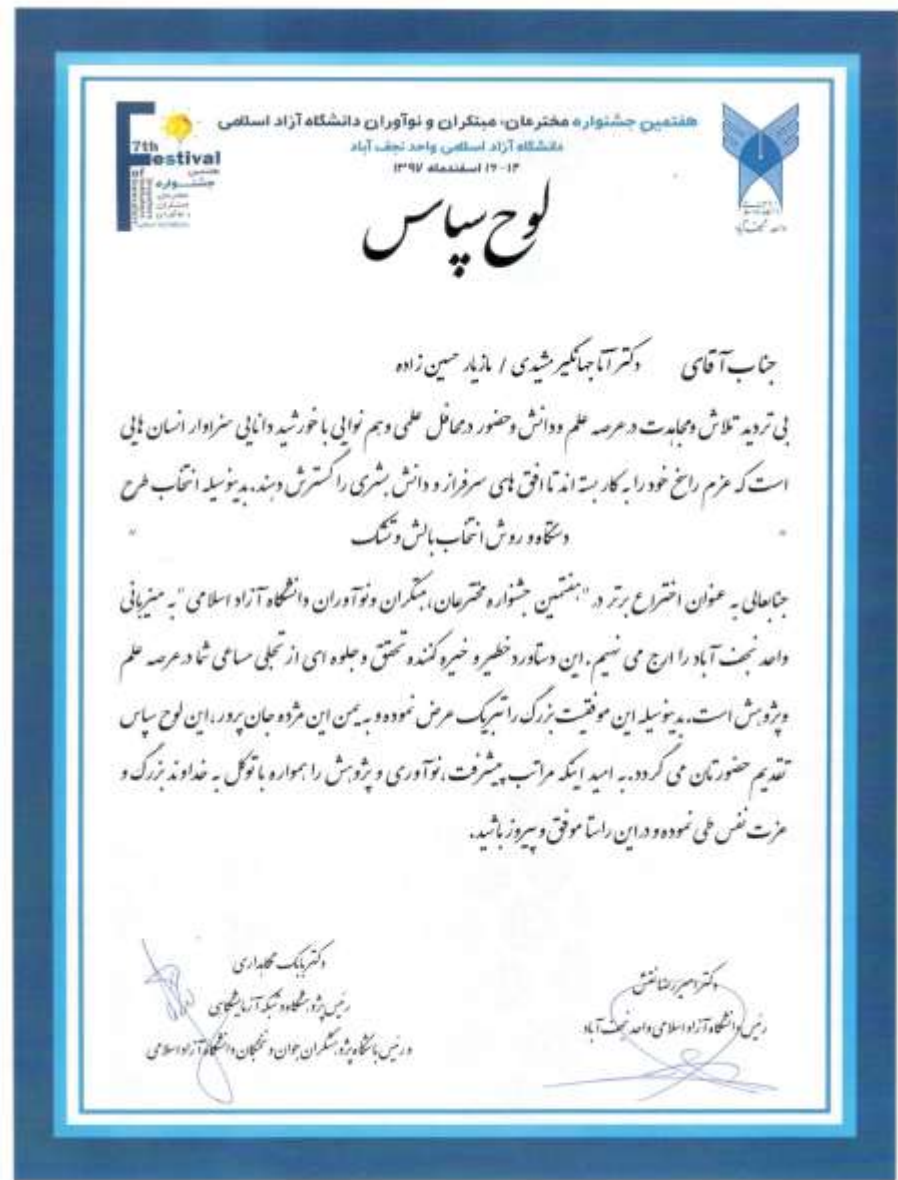 هفتمین جشنواره مخترعان، مبتکران و نوآوران دانشگاه آزاد اسلامی
دانشگاه آزاد اسلامی واحد نجف آباد
۱۴-۱۶ اسفندماه ۱۳۹۷
7th
Festival
of
هفتمین
جشنواره
مخترعان
مبتکران
و نوآوران
واحد نجف آباد
لوح سپاس
جناب آقای دکتر آتا جهانگیر مشیدی / مازیار حسین زاده
بی تردید تلاش ومجاهدت در عرصه علم ودانش وحضور درمحافل علمی وهم نوایی با خورشید دانایی سزاوار انسان هایی
است که عزم راسخ خود را به کار بسته اند تا افق های سرفراز و دانش بشری را گسترش دهند. بدینوسیله انتخاب طرح
" دستگاه و روش انتخاب بالش و تشک "
جنابعالی به عنوان اختراع برتر در "هفتمین جشنواره مخترعان، مبتکران ونوآوران دانشگاه آزاد اسلامی" به میزبانی
واحد نجف آباد را ارج می نهیم. این دستاورد خطیر و خیره کننده تحقق و جلوه ای از تجلی مساعی شما در عرصه علم
وپژوهش است. بدینوسیله این موفقیت بزرگ را تبریک عرض نموده و به یمن این مژده جان پرور، این لوح سپاس
تقدیم حضورتان می گردد. به امید اینکه مراتب پیشرفت، نوآوری و پژوهش را همواره با توکل به خداوند بزرگ و
عزت نفس طی نموده و در این راستا موفق و پیروز باشید.
دکتر امیررضا نقش
رئیس دانشگاه آزاد اسلامی واحد نجف آباد
دکتر بابک نگاهداری
رئیس پژوهشگاه و شبکه آزمایشگاهی
و رئیس باشگاه پژوهشگران جوان و نخبگان دانشگاه آزاد اسلامی